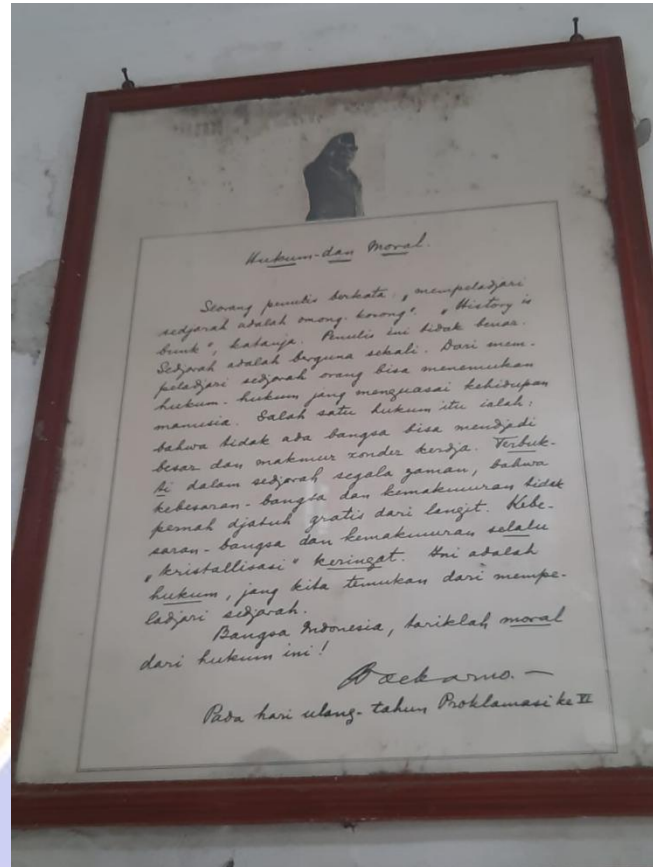 Hukum-dan Moral.
Seorang penulis berkata: „mempeladjari
sedjarah adalah omong-kosong". „History is
bunk", katanja. Penulis ini tidak benar.
Sedjarah adalah berguna sekali. Dari mem-
peladjari sedjarah orang bisa menemukan
hukum-hukum jang menguasai kehidupan
manusia. Salah satu hukum itu ialah:
bahwa tidak ada bangsa bisa mendjadi
besar dan makmur zonder kerdja. Terbuk-
ti dalam sedjarah segala zaman, bahwa
kebesaran-bangsa dan kemakmuran tidak
pernah djatuh gratis dari langit. Kebe-
saran-bangsa dan kemakmuran selalu
„kristallisasi" keringat. Ini adalah
hukum, jang kita temukan dari mempe-
ladjari sedjarah.
Bangsa Indonesia, tariklah moral
dari hukum ini!
Soekarno.—
Pada hari ulang-tahun Proklamasi ke VI